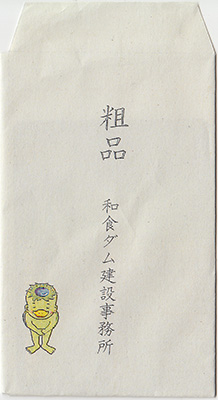 粗品
和食ダム建設事務所